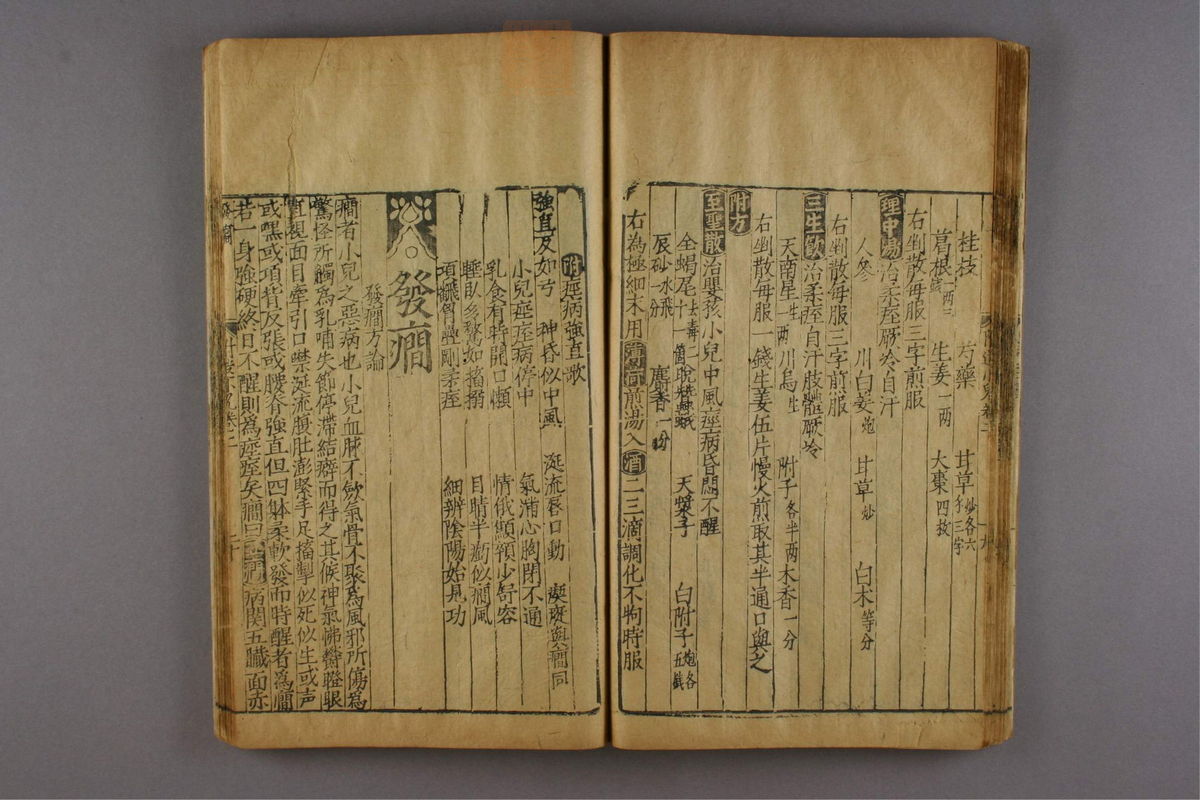 桂枝 芍藥 甘草
葛根 生姜一两 大棗四枚
右剉散每服三字煎服
理中湯治柔痓厥冷自汗
人參 川白姜炮 甘草炒 白术等分
右剉散每服三字煎服
三生飲治柔痓自汗肢體厥冷
天南星生一两 川烏生 附子各半两 木香一分
右剉散每服一錢生姜伍片慢火煎取其半通口與之
附方
至聖散治嬰孩小兒中風痓病昏悶不醒
全蝎尾 天漿子 白附子
辰砂水飛一分 麝香一
右為極細末用薄荷煎湯入酒二三滴調化不拘時服
附痓病強直歌
強直反如弓 神昏似中風 涎流唇口動 與癎同
小兒痓痙病 停中氣滿心胸閉不通
乳食有時開口懶 情俄顯顇少舒容
睡臥多驚如搐搦 目睛半 似癎風
項 剛柔痓 細辨陰陽始見功
發癎
發癎方論
癎者小兒之惡病也小兒血脉不歛氣骨不聚為風邪所傷為
驚怪所觸為乳哺失節停滯結癖而得之其候神氣怫鬱瞪眼
直視面目牽引口噤涎流腹肚澎緊手足搐掣似死似生或声
或嘿或項背反張或腰脊強直但四躰柔軟發而時醒者為癎
若一身強硬終日不醒則為痓痙矣癎曰 病関五臟面亦